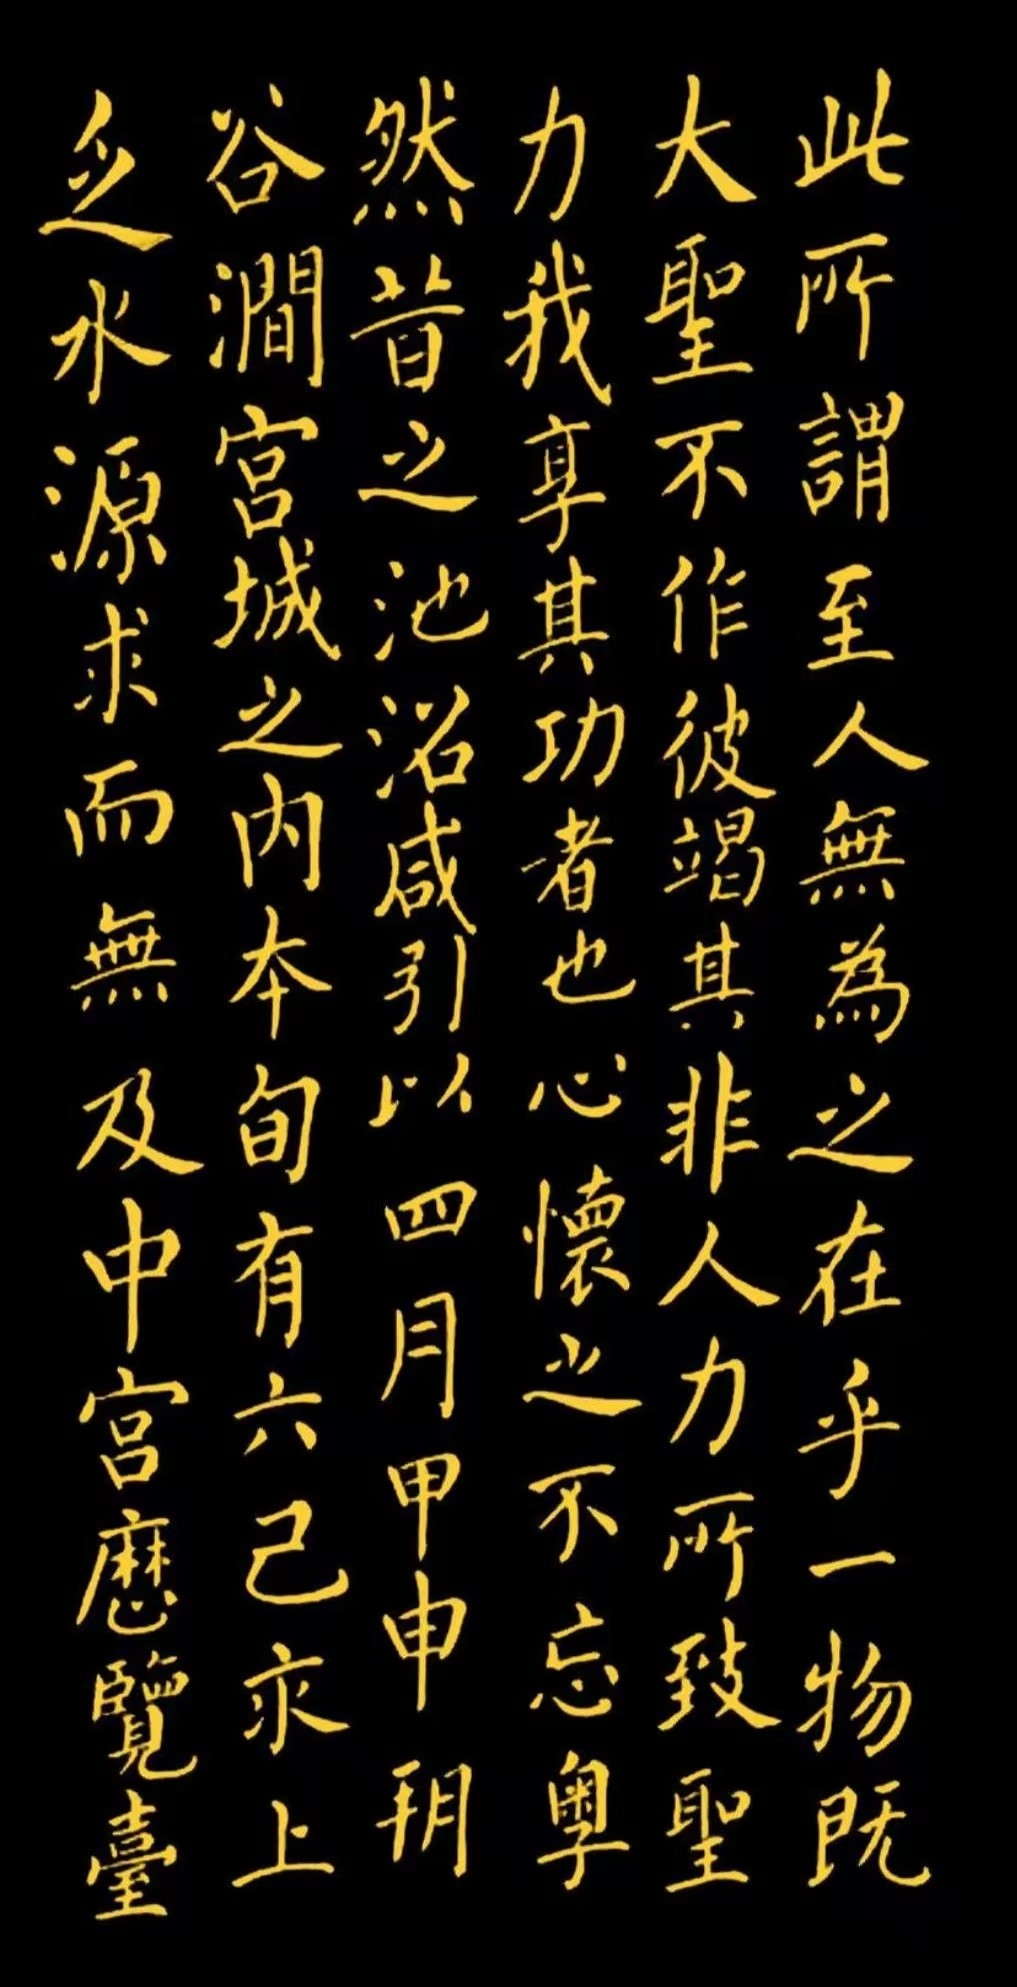 此所謂至人無為之在乎一物既
大聖不作彼竭其非人力所致聖
力我享其功者也心懷之不忘粵
然昔之池沼咸引以四月甲申朔
谷澗宮城之內本旬有六己求上
乏水源求而無及中宮歷覽臺